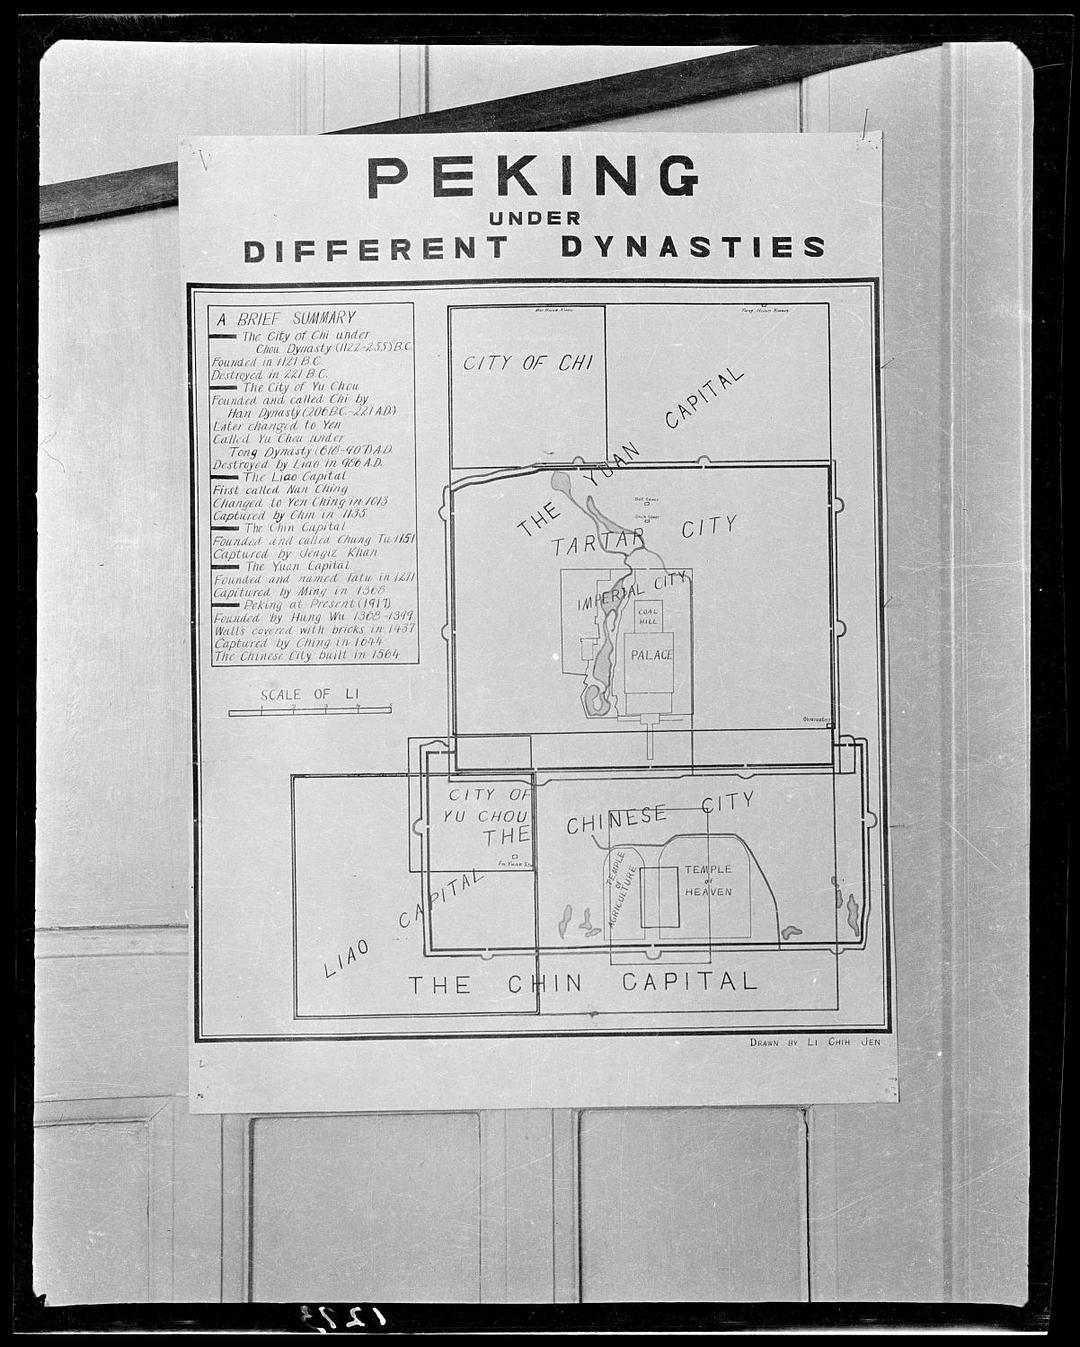 PEKING
UNDER
DIFFERENT DYNASTIES
A BRIEF SUMMARY
The City of Chi under
Chou Dynasty (1122-255) B.C.
Founded in 1121 B.C.
Destroyed in 221 B.C.
The City of Yu Chou
Founded and called Chi by
Han Dynasty (206 B.C.-221 A.D.)
Later changed to Yen
Called Yu Chou under
Tong Dynasty (618-907) A.D.
Destroyed by Liao in 986 A.D.
The Liao Capital
First called Nan Ching
Changed to Yen Ching in 1013
Captured by Chin in 1135
The Chin Capital
Founded and called Chung Tu 1151
Captured by Jengiz Khan
The Yuan Capital
Founded and named Tatu in 1271
Capitured by Ming in 1368
Peking at Present (1917)
Founded by Hung Wu 1368-1399
Walls covered with bricks in 1437
Captured by Ching in 1644
The Chinese City built in 1564
SCALE OF LI
CITY OF CHI
THE YUAN CAPITAL
Bell Tower
Drum Tower
TARTAR CITY
IMPERIAL CITY
COAL
HILL
PALACE
Observatory
CITY OF
YU CHOU
THE
LIAO CAPITAL
CHINESE CITY
TEMPLE
of
AGRICULTURE
TEMPLE
of
HEAVEN
THE CHIN CAPITAL
DRAWN BY LI CHIH JEN